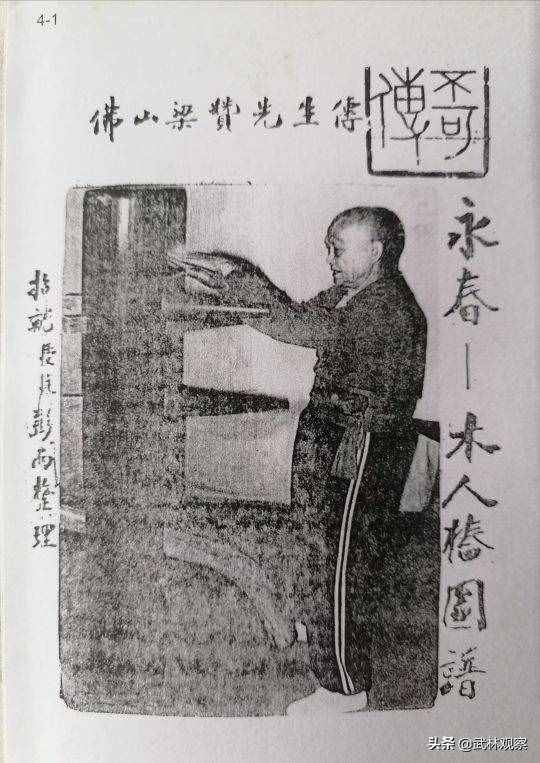 4-1
奇傳
佛山梁贊先生傳
永春—木人樁圖譜
彭南整理
头条 @武林观察